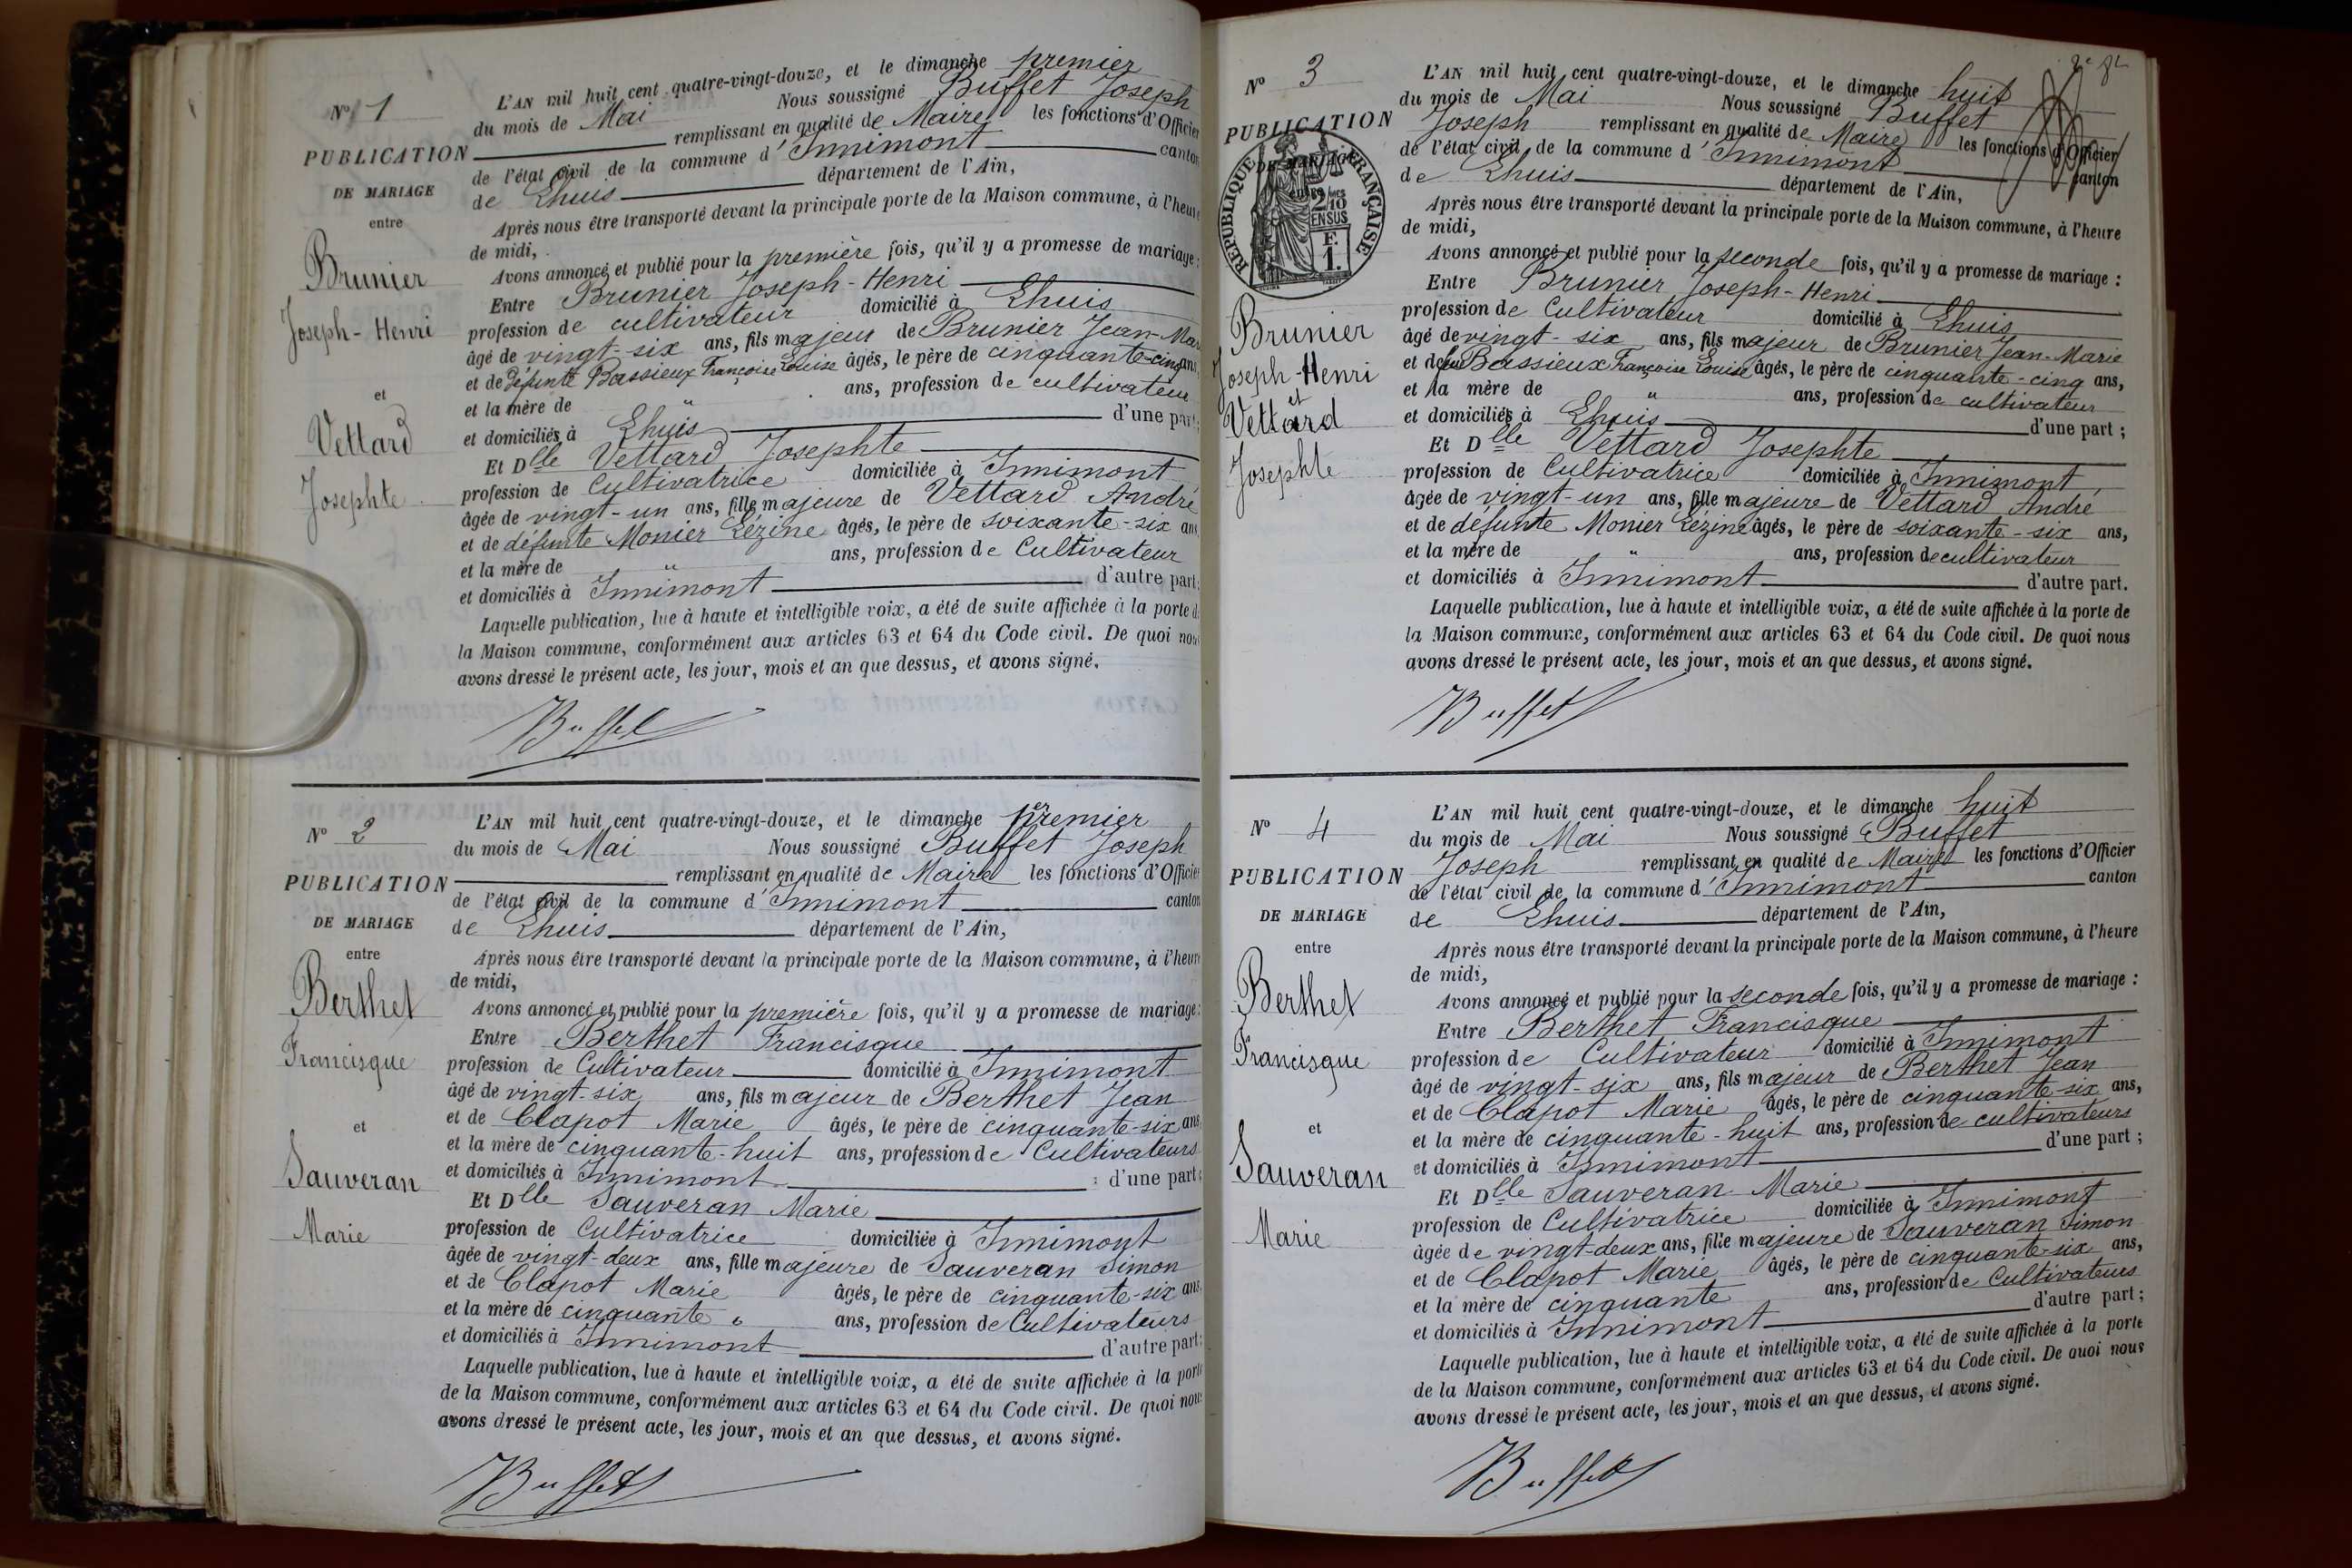 N° 1
PUBLICATION
DE MARIAGE
entre
Brunier
Joseph-Henri
et
Vettard
Josephte
L'AN mil huit cent quatre-vingt-douze, et le dimanche premier
du mois de Mai Nous soussigné Buffet Joseph
remplissant en qualité de Maire les fonctions d'Officier
de l'état civil de la commune d'Innimont canton
de Lhuis département de l'Ain,
Après nous être transporté devant la principale porte de la Maison commune, à l'heure
de midi,
Avons annoncé et publié pour la première fois, qu'il y a promesse de mariage :
Entre Brunier Joseph-Henri
profession de cultivateur domicilié à Lhuis
âgé de vingt-six ans, fils majeur de Brunier Jean-Mar
et de défunte Bassieux Françoise Louise âgés, le père de cinquante-cinq ans,
et la mère de " ans, profession de cultivateur
et domiciliés à Lhuis d'une part ;
Et Dlle Vettard Josephte
profession de Cultivatrice domiciliée à Innimont
âgée de vingt-un ans, fille majeure de Vettard André
et de défunte Monier Lézine âgés, le père de soixante-six ans
et la mère de " ans, profession de Cultivateur
et domiciliés à Innimont d'autre part.
Laquelle publication, lue à haute et intelligible voix, a été de suite affichée à la porte de
la Maison commune, conformément aux articles 63 et 64 du Code civil. De quoi nous
avons dressé le présent acte, les jour, mois et an que dessus, et avons signé.
Buffet
N° 2
PUBLICATION
DE MARIAGE
entre
Berthet
Francisque
et
Sauveran
Marie
L'AN mil huit cent quatre-vingt-douze, et le dimanche premier
du mois de Mai Nous soussigné Buffet Joseph
remplissant en qualité de Maire les fonctions d'Officier
de l'état civil de la commune d'Innimont canton
de Lhuis département de l'Ain,
Après nous être transporté devant la principale porte de la Maison commune, à l'heure
de midi,
Avons annoncé et publié pour la première fois, qu'il y a promesse de mariage :
Entre Berthet Francisque
profession de Cultivateur domicilié à Innimont
âgé de vingt-six ans, fils majeur de Berthet Jean
et de Clapot Marie âgés, le père de cinquante-six ans
et la mère de cinquante-huit ans, profession de Cultivateurs
et domiciliés à Innimont d'une part ;
Et Dlle Sauveran Marie
profession de Cultivatrice domiciliée à Innimont
âgée de vingt-deux ans, fille majeure de Sauveran Simon
et de Clapot Marie âgés, le père de cinquante-six ans
et la mère de cinquante " ans, profession de Cultivateurs
et domiciliés à Innimont d'autre part ;
Laquelle publication, lue à haute et intelligible voix, a été de suite affichée à la porte
de la Maison commune, conformément aux articles 63 et 64 du Code civil. De quoi nous
avons dressé le présent acte, les jour, mois et an que dessus, et avons signé.
Buffet
N° 3
PUBLICATION
DE MARIAGE
entre
RÉPUBLIQUE FRANÇAISE
2/10 EN SUS
F. 1.
Brunier
Joseph-Henri
et
Vettard
Josephte
L'AN mil huit cent quatre-vingt-douze, et le dimanche huit
du mois de Mai Nous soussigné Buffet
Joseph remplissant en qualité de Maire les fonctions d'Officier
de l'état civil de la commune d'Innimont canton
de Lhuis département de l'Ain,
Après nous être transporté devant la principale porte de la Maison commune, à l'heure
de midi,
Avons annoncé et publié pour la seconde fois, qu'il y a promesse de mariage :
Entre Brunier Joseph-Henri
profession de Cultivateur domicilié à Lhuis
âgé de vingt-six ans, fils majeur de Brunier Jean-Marie
et de Bassieux Françoise Louise âgés, le père de cinquante-cinq ans,
et la mère de " ans, profession de cultivateur
et domiciliés à Lhuis d'une part ;
Et Dlle Vettard Josephte
profession de Cultivatrice domiciliée à Innimont
âgée de vingt-un ans, fille majeure de Vettard André
et de défunte Monier Lézine âgés, le père de soixante-six ans,
et la mère de " ans, profession de cultivateur
et domiciliés à Innimont d'autre part.
Laquelle publication, lue à haute et intelligible voix, a été de suite affichée à la porte de
la Maison commune, conformément aux articles 63 et 64 du Code civil. De quoi nous
avons dressé le présent acte, les jour, mois et an que dessus, et avons signé.
Buffet
N° 4
PUBLICATION
DE MARIAGE
entre
Berthet
Francisque
et
Sauveran
Marie
L'AN mil huit cent quatre-vingt-douze, et le dimanche huit
du mois de Mai Nous soussigné Buffet
Joseph remplissant en qualité de Maire les fonctions d'Officier
de l'état civil de la commune d'Innimont canton
de Lhuis département de l'Ain,
Après nous être transporté devant la principale porte de la Maison commune, à l'heure
de midi,
Avons annoncé et publié pour la seconde fois, qu'il y a promesse de mariage :
Entre Berthet Francisque
profession de Cultivateur domicilié à Innimont
âgé de vingt-six ans, fils majeur de Berthet Jean
et de Clapot Marie âgés, le père de cinquante-six ans,
et la mère de cinquante-huit ans, profession de cultivateurs
et domiciliés à Innimont d'une part ;
Et Dlle Sauveran Marie
profession de Cultivatrice domiciliée à Innimont
âgée de vingt-deux ans, fille majeure de Sauveran Simon
et de Clapot Marie âgés, le père de cinquante-six ans,
et la mère de cinquante ans, profession de Cultivateurs
et domiciliés à Innimont d'autre part ;
Laquelle publication, lue à haute et intelligible voix, a été de suite affichée à la porte
de la Maison commune, conformément aux articles 63 et 64 du Code civil. De quoi nous
avons dressé le présent acte, les jour, mois et an que dessus, et avons signé.
Buffet